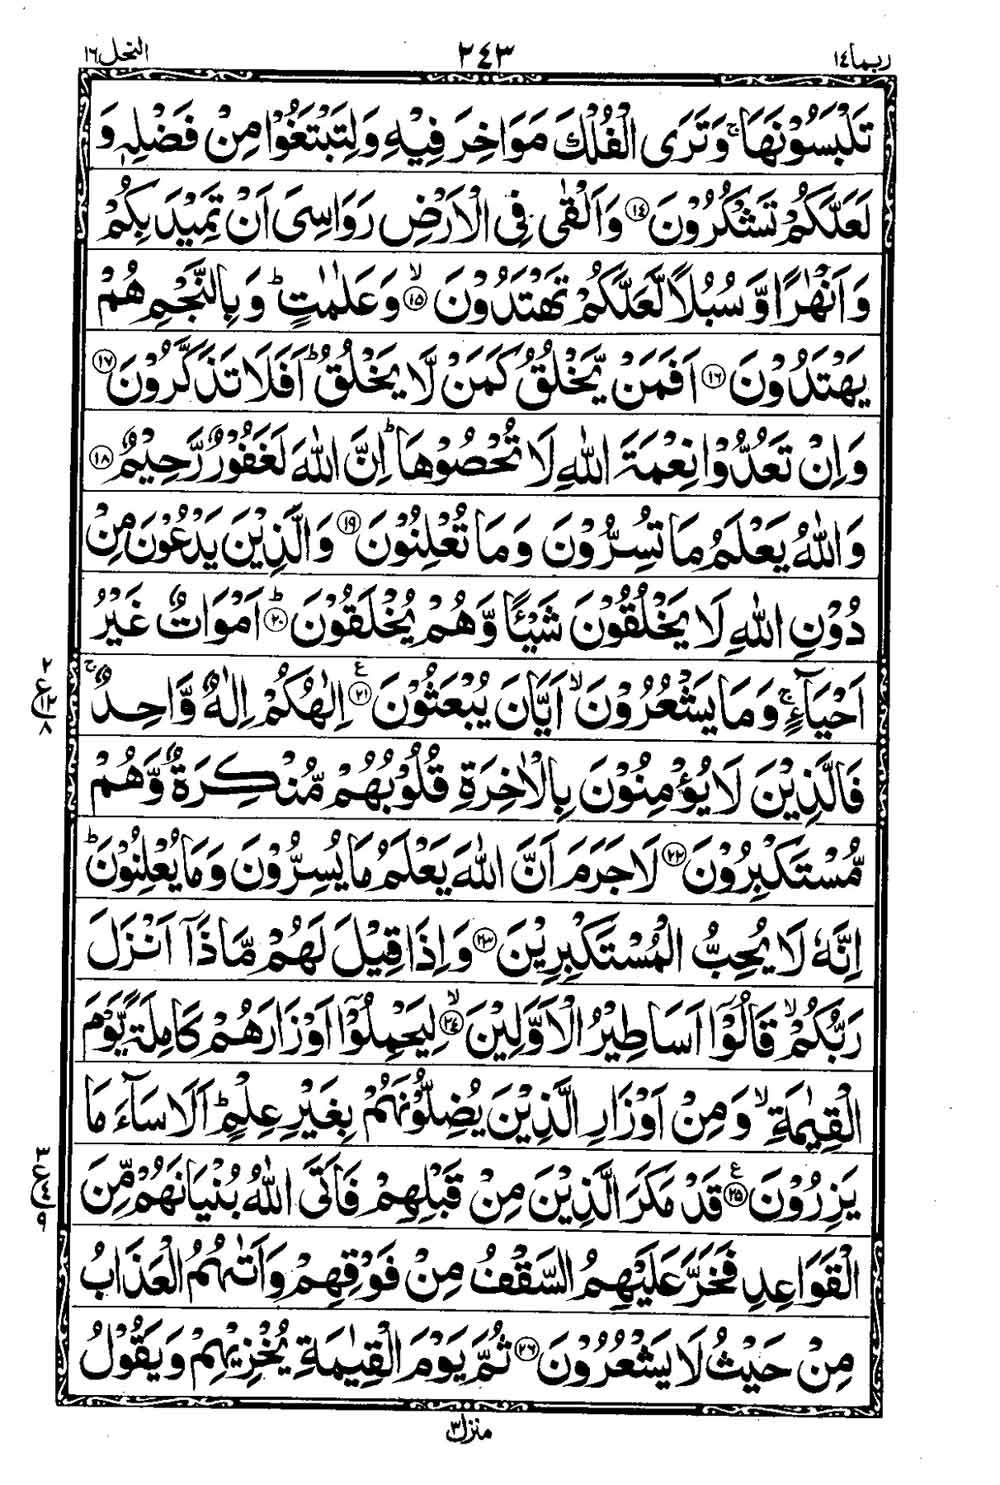 ربما ١٤ ٢٤٣ النحل ١٦
تَلْبَسُوْنَهَا ۚ وَتَرَى الْفُلْكَ مَوَاخِرَ فِيْهِ وَلِتَبْتَغُوْا مِنْ فَضْلِهٖ وَ
لَعَلَّكُمْ تَشْكُرُوْنَ ﴿١٤﴾ وَاَلْقٰى فِى الْاَرْضِ رَوَاسِىَ اَنْ تَمِيْدَ بِكُمْ
وَاَنْهٰرًا وَّ سُبُلًا لَّعَلَّكُمْ تَهْتَدُوْنَ ۙ﴿١٥﴾ وَعَلٰمٰتٍ ؕ وَبِالنَّجْمِ هُمْ
يَهْتَدُوْنَ ﴿١٦﴾ اَفَمَنْ يَّخْلُقُ كَمَنْ لَّا يَخْلُقُ ؕ اَفَلَا تَذَكَّرُوْنَ ﴿١٧﴾
وَاِنْ تَعُدُّوْا نِعْمَةَ اللّٰهِ لَا تُحْصُوْهَا ؕ اِنَّ اللّٰهَ لَغَفُوْرٌ رَّحِيْمٌ ﴿١٨﴾
وَاللّٰهُ يَعْلَمُ مَا تُسِرُّوْنَ وَمَا تُعْلِنُوْنَ ﴿١٩﴾ وَالَّذِيْنَ يَدْعُوْنَ مِنْ
دُوْنِ اللّٰهِ لَا يَخْلُقُوْنَ شَيْئًا وَّهُمْ يُخْلَقُوْنَ ؕ﴿٢٠﴾ اَمْوَاتٌ غَيْرُ
اَحْيَآءٍ ۚ وَمَا يَشْعُرُوْنَ ۙ اَيَّانَ يُبْعَثُوْنَ ﴿٢١﴾ ع اِلٰهُكُمْ اِلٰهٌ وَّاحِدٌ ۚ
فَالَّذِيْنَ لَا يُؤْمِنُوْنَ بِالْاٰخِرَةِ قُلُوْبُهُمْ مُّنْكِرَةٌ وَّهُمْ
مُّسْتَكْبِرُوْنَ ﴿٢٢﴾ لَا جَرَمَ اَنَّ اللّٰهَ يَعْلَمُ مَا يُسِرُّوْنَ وَمَا يُعْلِنُوْنَ ؕ
اِنَّهٗ لَا يُحِبُّ الْمُسْتَكْبِرِيْنَ ﴿٢٣﴾ وَاِذَا قِيْلَ لَهُمْ مَّاذَآ اَنْزَلَ
رَبُّكُمْ ۙ قَالُوْٓا اَسَاطِيْرُ الْاَوَّلِيْنَ ۙ﴿٢٤﴾ لِيَحْمِلُوْٓا اَوْزَارَهُمْ كَامِلَةً يَّوْمَ
الْقِيٰمَةِ ۙ وَمِنْ اَوْزَارِ الَّذِيْنَ يُضِلُّوْنَهُمْ بِغَيْرِ عِلْمٍ ؕ اَلَا سَآءَ مَا
يَزِرُوْنَ ﴿٢٥﴾ ع قَدْ مَكَرَ الَّذِيْنَ مِنْ قَبْلِهِمْ فَاَتَى اللّٰهُ بُنْيَانَهُمْ مِّنَ
الْقَوَاعِدِ فَخَرَّ عَلَيْهِمُ السَّقْفُ مِنْ فَوْقِهِمْ وَاَتٰىهُمُ الْعَذَابُ
مِنْ حَيْثُ لَا يَشْعُرُوْنَ ﴿٢٦﴾ ثُمَّ يَوْمَ الْقِيٰمَةِ يُخْزِيْهِمْ وَيَقُوْلُ
٢ ع ١٢ ٨
٣ ع ٤ ٩
منزل ٣